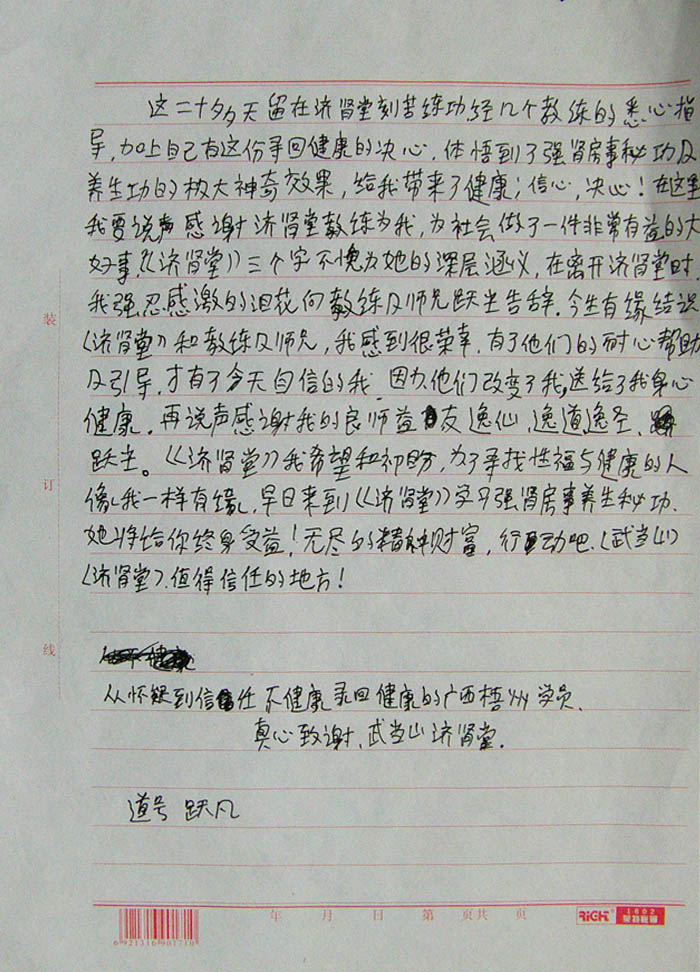 这二十多天留在济肾堂刻苦练功经几个教练的悉心指
导,加上自己有这份寻回健康的决心.体悟到了强肾房事秘功及
养生功的极大神奇效果,给我带来了健康;信心,决心!在这里
我要说声感谢济肾堂教练为我,为社会做了一件非常有益的大
好事.《济肾堂》三个字不愧为她的深层涵义,在离开济肾堂时.
我强忍感激的泪花向教练及师兄跃尘告辞.今生有缘结识
《济肾堂》和教练及师兄,我感到很荣幸.有了他们的耐心帮助
及引导.才有了今天自信的我.因为他们改变了我,送给了我身心
健康.再说声感谢我的良师益友逸仙、逸道、逸圣、
跃尘。《济肾堂》我希望和初盼,为了寻找性福与健康的人
像我一样有缘,早日来到《济肾堂》学习强肾房事养生秘功.
她将给你终身受益!无尽的精神财富,行动吧.《武当山》
《济肾堂》.值得信任的地方!
健康
从怀疑到信任 不健康寻回健康的广西梧州学员.
真心致谢.武当山济肾堂.
道号 跃凡
装
订
线
年 月 日 第 页共 页
RiCH®
1602
6921316901710